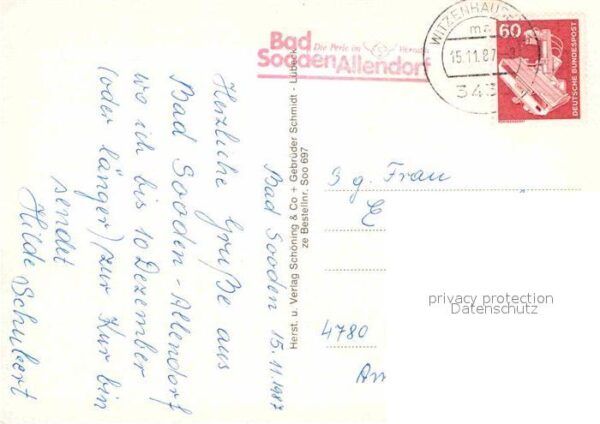 Bad Sooden 15.11.1987
Herzliche Grüße aus
Bad Sooden-Allendorf
wo ich bis 10 Dezember
(oder länger) zur Kur bin
sendet
Hilde Schubert
Herst. u. Verlag Schöning & Co + Gebrüder Schmidt - Lübeck
ze Bestellnr. Soo 697
Bad Sooden Allendorf
Die Perle im Werratal
WITZENHAUSEN
15.11.87
343
60
DEUTSCHE BUNDESPOST
Frau
E
4780
privacy protection
Datenschutz